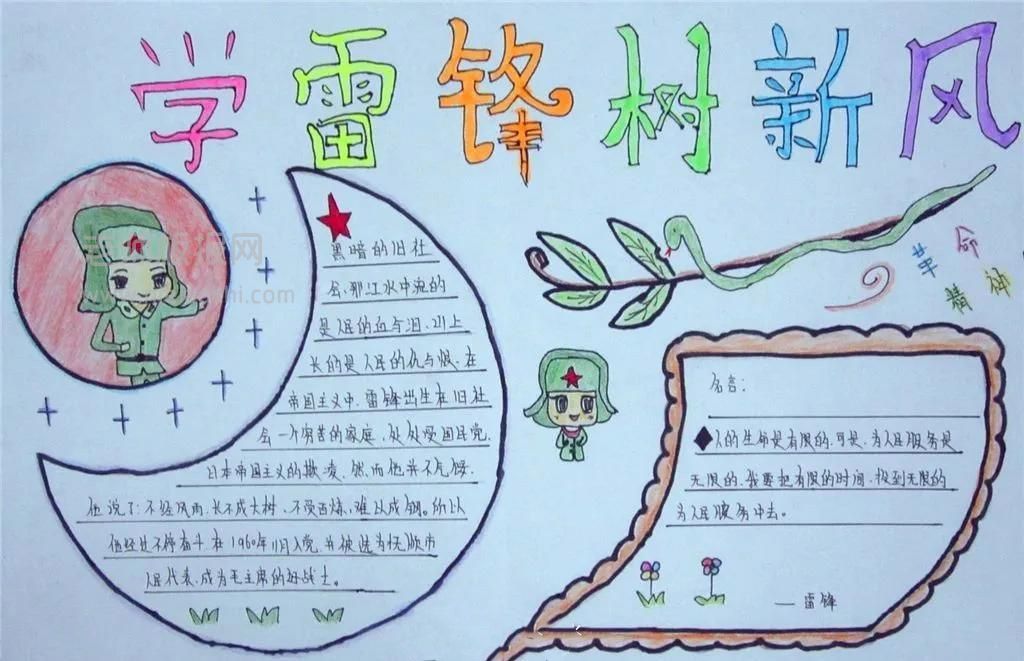 学雷锋树新风
革命
精神
黑暗的旧社
会,那江水中流的
是人民的血与泪,山上
长的是人民的仇与恨,在
帝国主义中,雷锋出生在旧社
会一个穷苦的家庭,处处受国民党,
日本帝国主义的欺凌,然而他并不气馁,
他说了:不经风雨,长不成大树,不受百炼,难以成钢。所以
他经过不停奋斗,在1960年11月入党,并被选为抚顺市
人民代表,成为毛主席的好战士。
名言:
人的生命是有限的,可是,为人民服务是
无限的,我要把有限的时间,投到无限的
为人民服务中去。
——雷锋